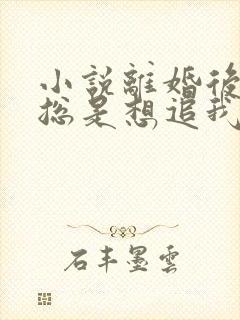 小說離婚後
總是想追我
石丰墨雲